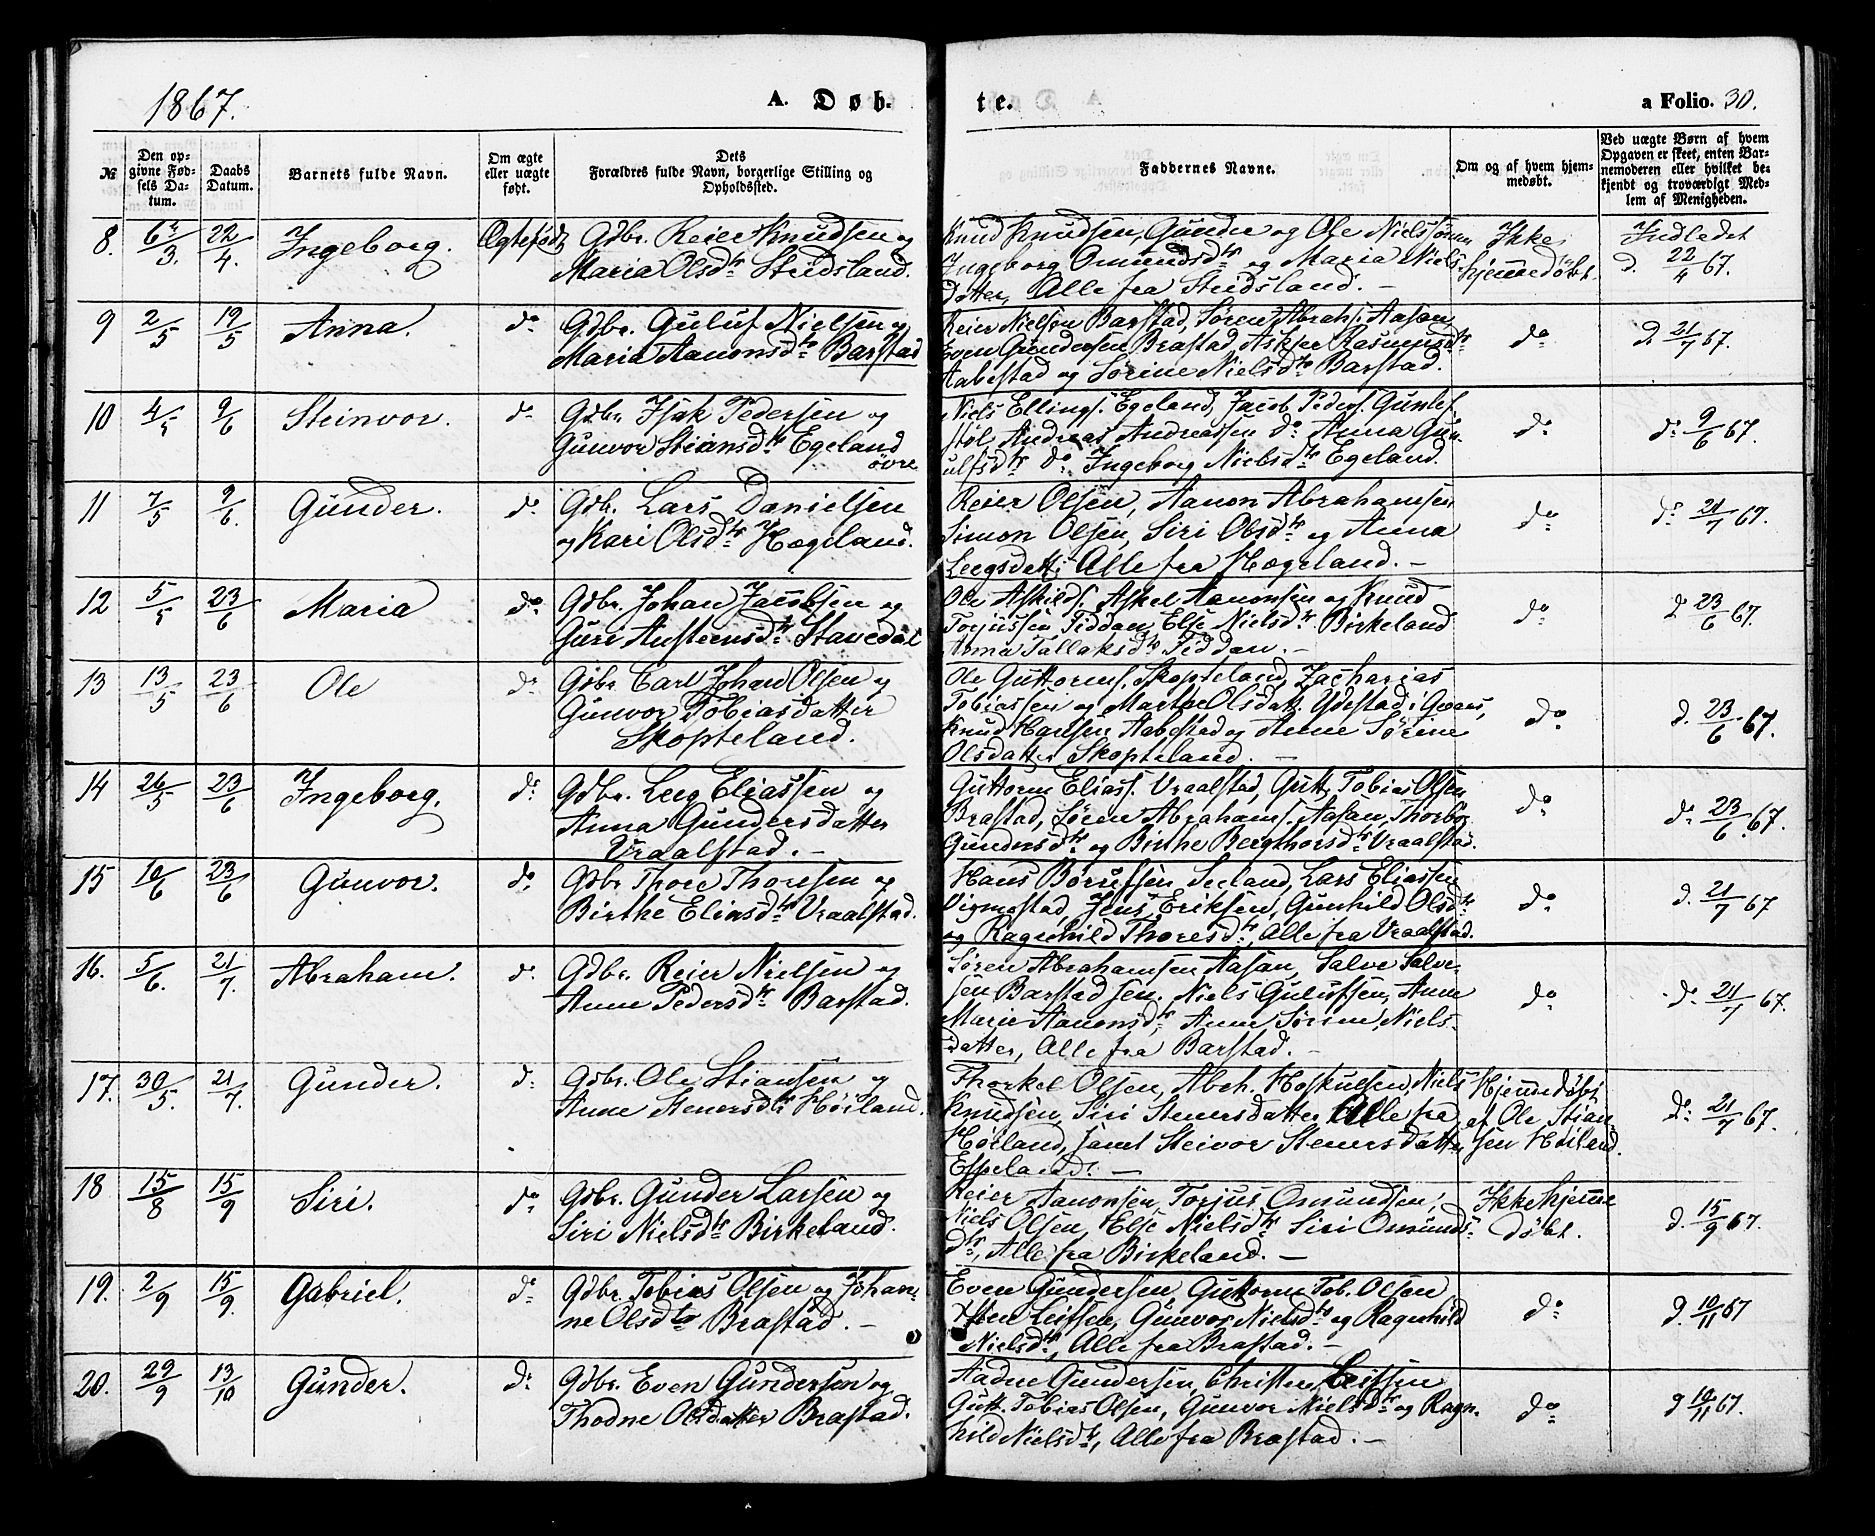 1867.
A. Døb-
te.
a Folio. 30.
№
Den op-
givne Fød-
sels Da-
tum.
Daabs
Datum.
Barnets fulde Navn.
Om ægte
eller uægte
født.
Dets
Forældres fulde Navn, borgerlige Stilling og
Opholdssted.
Faddernes Navne.
Om og af hvem hjem-
medøbt.
Ved uægte Børn af hvem
Opgaven er skeet, enten Bar-
nemoderen eller hvilket be-
kjendt og troværdigt Med-
lem af Menigheden.
8. 6/3. 22/4. Ingeborg. Ægtefødt Gdbr. Reier Knudsen og
Maria Olsdtr Studsland.
Knud Knudsen, Gunder og Ole Nielssønner
Ingeborg Omundsdtr og Maria Niels-
datter, Alle fra Studsland. –
Ikke
hjemmedøbt.
Indledet
d. 22/4 67.
9 2/5 19/5 Anna. do Gdbr. Guluf Nielsen og
Maria Aanonsdtr Barstad
Reier Nielsen Barstad, Søren Abrahs. Aasan
Even Gundersen Brastad, Askjer Rasmusdtr
Aabestad og Sørine Nielsdtr Barstad.
do
d. 21/7 67.
10 4/5 9/6 Steinvor. do Gdbr. Isak Pedersen og
Gunvor Stiansdtr Egeland
øvre
Niels Ellings. Egeland, Jacob Peders. Gunlef-
støl, Andreas Andreassen do Anna Gun-
ulfsdtr do. Ingeborg Nielsdtr Egeland.
do
d. 9/6 67.
11 7/5 9/6. Gunder. do Gdb. Lars Danielsen
og Kari Olsdtr Hægeland.
Reier Olsen, Aanon Abrahamsen
Simon Olsen, Siri Olsdtr og Anna
Leegsdatt. Alle fra Hægeland. –
do
d. 21/7 67.
12 5/5 23/6 Maria do Gdbr. Johan Jacobsen og
Guri Austeensdtr Stavedal
Ole Askilds. Askel Aanonsen og Knud
Torjussen Fiddan, Else Nielsdtr Birkeland
Anna Tallaksdtr Fiddan. –
do
d 23/6 67.
13 13/5 23/6 Ole do Gdbr. Carl Johan Olsen og
Gunvor Tobiasdatter
Skopteland.
Ole Guttorms. Skopteland, Zacharias
Tobiassen og Marthe Olsdatt. Ydestad i
Knud Hansen Aabestad og Anne Sørine
Olsdatter Skopteland. –
do
d. 23/6 67.
14 26/5 23/6 Ingeborg. do Gdbr. Leeg Eliassen og
Anna Gundersdatter
Vraalstad. –
Guttorm Eliass. Vraalstad, Gutt. Tobias Olsen
Brastad, Søren Abrahams. Aasan, Thorbor
Gundersdtr og Birthe Bergthorsdtr Vraalstad.
do
d. 23/6 67.
15 10/6 23/6 Gunvor. do Gdbr Thore Thoresen og
Birthe Eliasdtr Vraalstad.
Hans Børufsen Seeland, Lars Eliassen
Vigmostad, Jens Eriksen, Gunhild Olsdtr
og Ragnhild Thoresdtr, Alle fra Vraalstad.
do
d. 21/7 67
16. 5/6. 21/7. Abraham. do Gdbr. Reier Nielsen og
Anne Pedersdtr Barstad.
Søren Abrahamsen Aasan, Salve Salve-
sen Barstad sen. Niels Gulufsen, Anne
Marie Aanonsdtr, Anne Sørine Niels-
datter, Alle fra Barstad. –
do
d. 21/7 67.
17. 30/5. 21/7. Gunder. do Gdbr. Ole Stiansen og
Anne Stenersdtr Høiland.
Thorkel Olsen, Abrh. Hoskulsen, Niels
Knudsen, Siri Stenersdatter, Alle fra
Høiland, samt Steivor Stenersdatter
Espeland. –
Hjemmedøbt
af Ole Stian-
sen Høiland.
d. 21/7 67.
18 15/8 15/9 Siri. do Gdbr. Gunder Larsen og
Siri Nielsdtr Birkeland.
Reier Aanonsen, Torjus Omundsen,
Niels Olsen, Else Nielsdtr Siri Omunds-
dtr, Alle fra Birkeland. –
Ikke hjemme
døbt.
d. 15/9 67.
19. 2/9 15/9. Gabriel. do Gdbr. Tobias Olsen og Johan-
ne Olsdtr Brastad. –
Even Gundersen, Guttorm Tob. Olsen
Leifsen, Gunvor Nielsdtr og Ragnhild
Nielsdtr, Alle fra Brastad. –
do
d. 10/11 67
20. 29/9 13/10 Gunder. do Gdbr. Even Gundersen og
Thodne Olsdatter Brastad.
Aadne Gundersen, Christen Leifsen
Gutt. Tobias Olsen, Gunvor Nielsdtr og Ragn-
hild Nielsdtr, Alle fra Brastad. –
do
d 10/11 67.